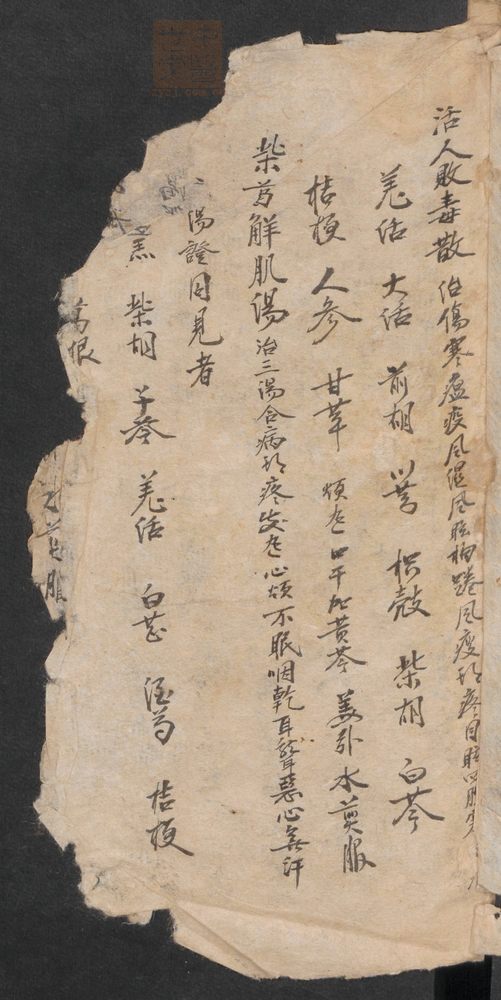 活人敗毒散 治傷寒瘟疫风湿风眩拘踡风痰頭疼目眩
羗活 大活 前胡 川芎 枳殻 柴胡 白苓
桔梗 人参 甘草 煩热口干加黄芩 姜引水煎服
柴葛解肌湯 治三陽合病頭疼發热心煩不眠咽乾耳聾惡心無汗
陽證同見者
柴胡 子芩 羌活 白芷 酒芍 桔梗
葛根
煎服